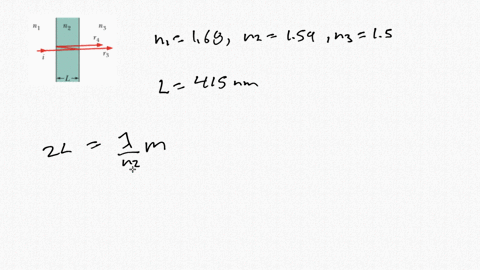 n₁ n₂ n₃
r₄
i r₃
L
n₁ = 1.68, n2 = 1.59, n3 = 1.5
L = 415 nm
2L = λ/n2 m